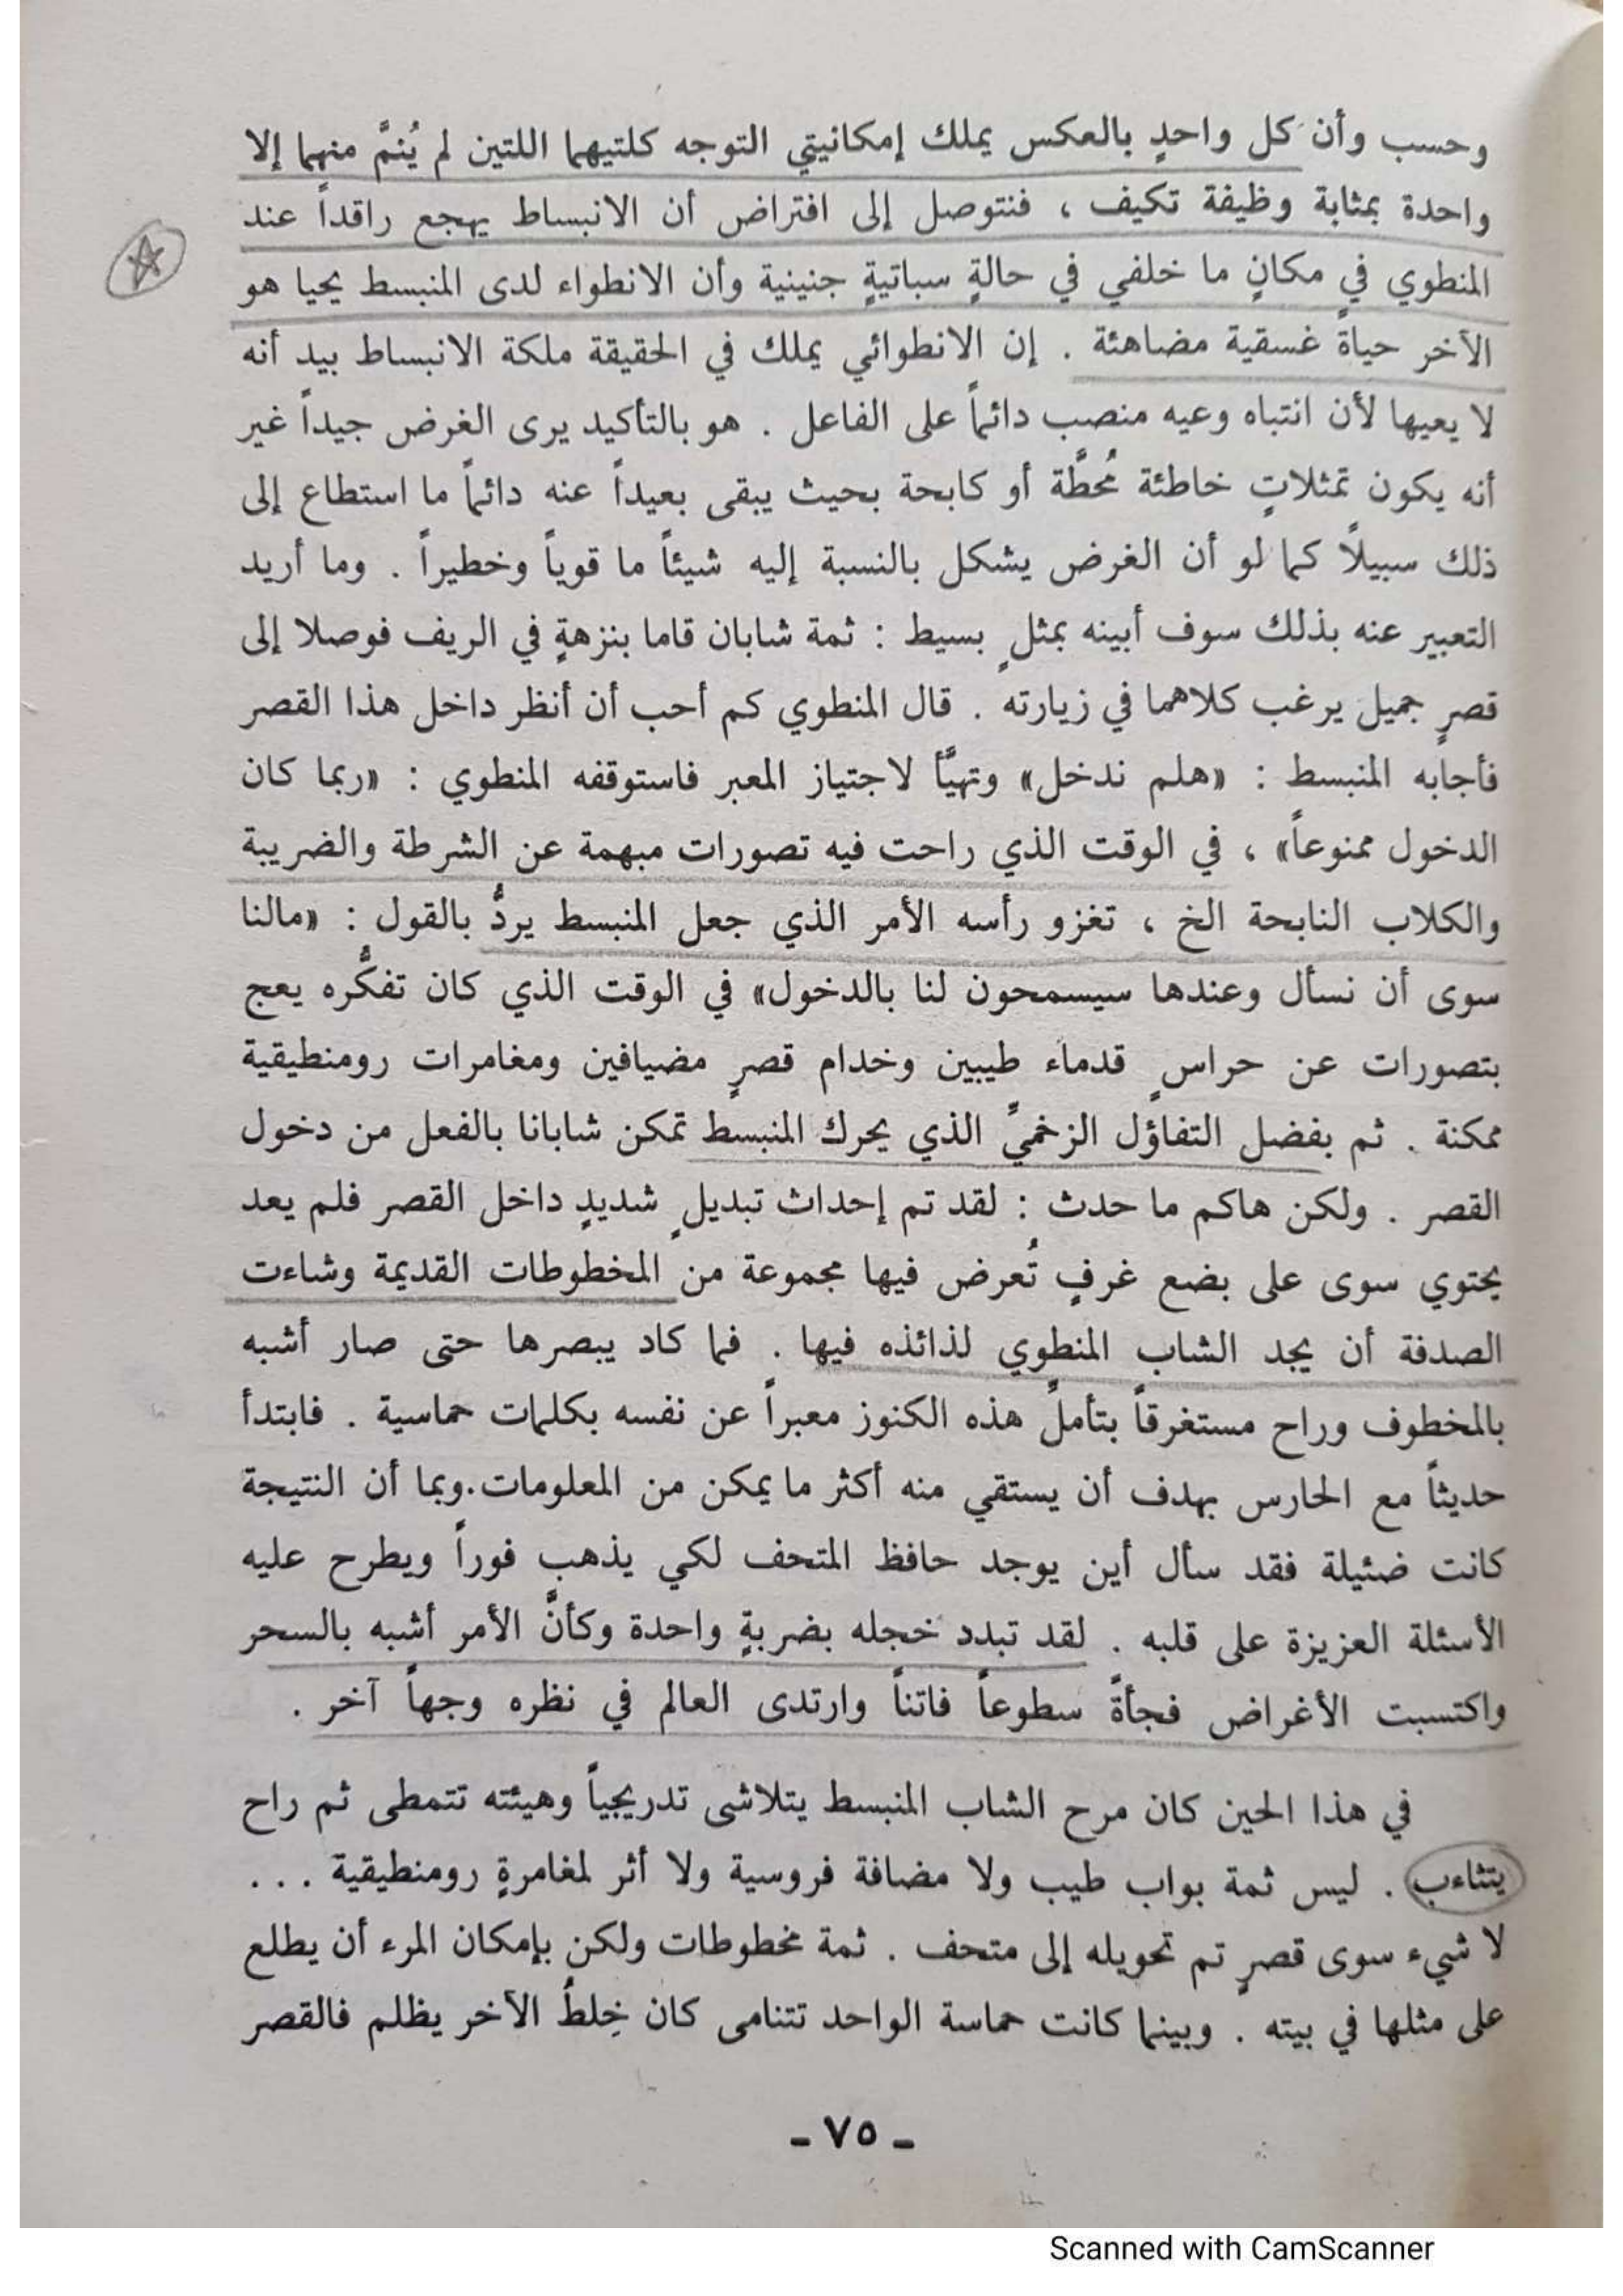 وحسب وأن كل واحدٍ بالعكس يملك إمكانيتي التوجه كلتيهما اللتين لم يُنمَّ منهما إلا
واحدة بمثابة وظيفة تكيف ، فنتوصل إلى افتراض أن الانبساط يهجع راقداً عند
المنطوي في مكانٍ ما خلفي في حالةٍ سباتيةٍ جنينية وأن الانطواء لدى المنبسط يحيا هو
الآخر حياةً غسقية مضاهئة . إن الانطوائي يملك في الحقيقة ملكة الانبساط بيد أنه
لا يعيها لأن انتباه وعيه منصب دائماً على الفاعل . هو بالتأكيد يرى الغرض جيداً غير
أنه يكون تمثلاتٍ خاطئة مُحطَّة أو كابحة بحيث يبقى بعيداً عنه دائماً ما استطاع إلى
ذلك سبيلاً كما لو أن الغرض يشكل بالنسبة إليه شيئاً ما قوياً وخطيراً . وما أريد
التعبير عنه بذلك سوف أبينه بمثلٍ بسيط : ثمة شابان قاما بنزهةٍ في الريف فوصلا إلى
قصرٍ جميل يرغب كلاهما في زيارته . قال المنطوي كم أحب أن أنظر داخل هذا القصر
فأجابه المنبسط : «هلم ندخل» وتهيَّأ لاجتياز المعبر فاستوقفه المنطوي : «ربما كان
الدخول ممنوعاً» ، في الوقت الذي راحت فيه تصورات مبهمة عن الشرطة والضريبة
والكلاب النابحة الخ ، تغزو رأسه الأمر الذي جعل المنبسط يردُّ بالقول : «مالنا
سوى أن نسأل وعندها سيسمحون لنا بالدخول» في الوقت الذي كان تفكُّره يعج
بتصورات عن حراسٍ قدماء طيبين وخدام قصرٍ مضيافين ومغامرات رومنطيقية
ممكنة . ثم بفضل التفاؤل الزخميِّ الذي يحرك المنبسط تمكن شابانا بالفعل من دخول
القصر . ولكن هاكم ما حدث : لقد تم إحداث تبديلٍ شديدٍ داخل القصر فلم يعد
يحتوي سوى على بضع غرفٍ تُعرض فيها مجموعة من المخطوطات القديمة وشاءت
الصدفة أن يجد الشاب المنطوي لذائذه فيها . فما كاد يبصرها حتى صار أشبه
بالمخطوف وراح مستغرقاً بتأملِّ هذه الكنوز معبراً عن نفسه بكلمات حماسية . فابتدأ
حديثاً مع الحارس بهدف أن يستقي منه أكثر ما يمكن من المعلومات.وبما أن النتيجة
كانت ضئيلة فقد سأل أين يوجد حافظ المتحف لكي يذهب فوراً ويطرح عليه
الأسئلة العزيزة على قلبه . لقد تبدد خجله بضربةٍ واحدة وكأنَّ الأمر أشبه بالسحر
واكتسبت الأغراض فجأةً سطوعاً فاتناً وارتدى العالم في نظره وجهاً آخر .
في هذا الحين كان مرح الشاب المنبسط يتلاشى تدريجياً وهيئته تتمطى ثم راح
يتثاءب . ليس ثمة بواب طيب ولا مضافة فروسية ولا أثر لمغامرةٍ رومنطيقية ...
لا شيء سوى قصرٍ تم تحويله إلى متحف . ثمة مخطوطات ولكن بإمكان المرء أن يطلع
على مثلها في بيته . وبينما كانت حماسة الواحد تتنامى كان خِلطُ الآخر يظلم فالقصر
ـ ٧٥ ـ
Scanned with CamScanner